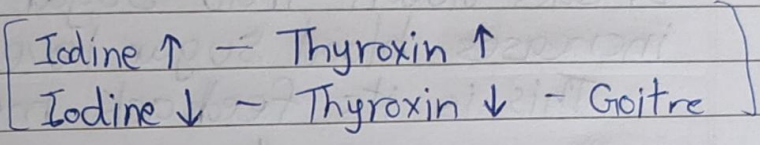 Iodine ↑ — Thyroxin ↑
Iodine ↓ - Thyroxin ↓ - Goitre